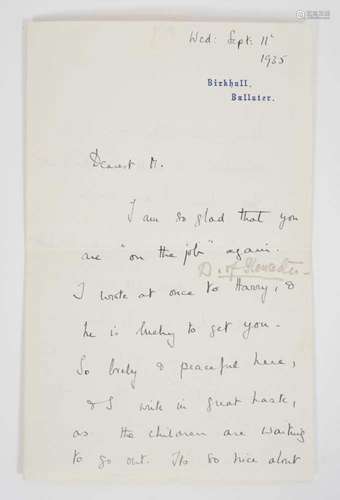 Wed: Sept. 11th
1935
Birkhall,
Ballater.
Dearest M.
I am so glad that you
are "on the job" again.
D. of Gloucester
I wrote at once to Harry, &
he is lucky to get you.
So lovely & peaceful here,
& I write in great haste,
as the children are waiting
to go out. Its so nice about